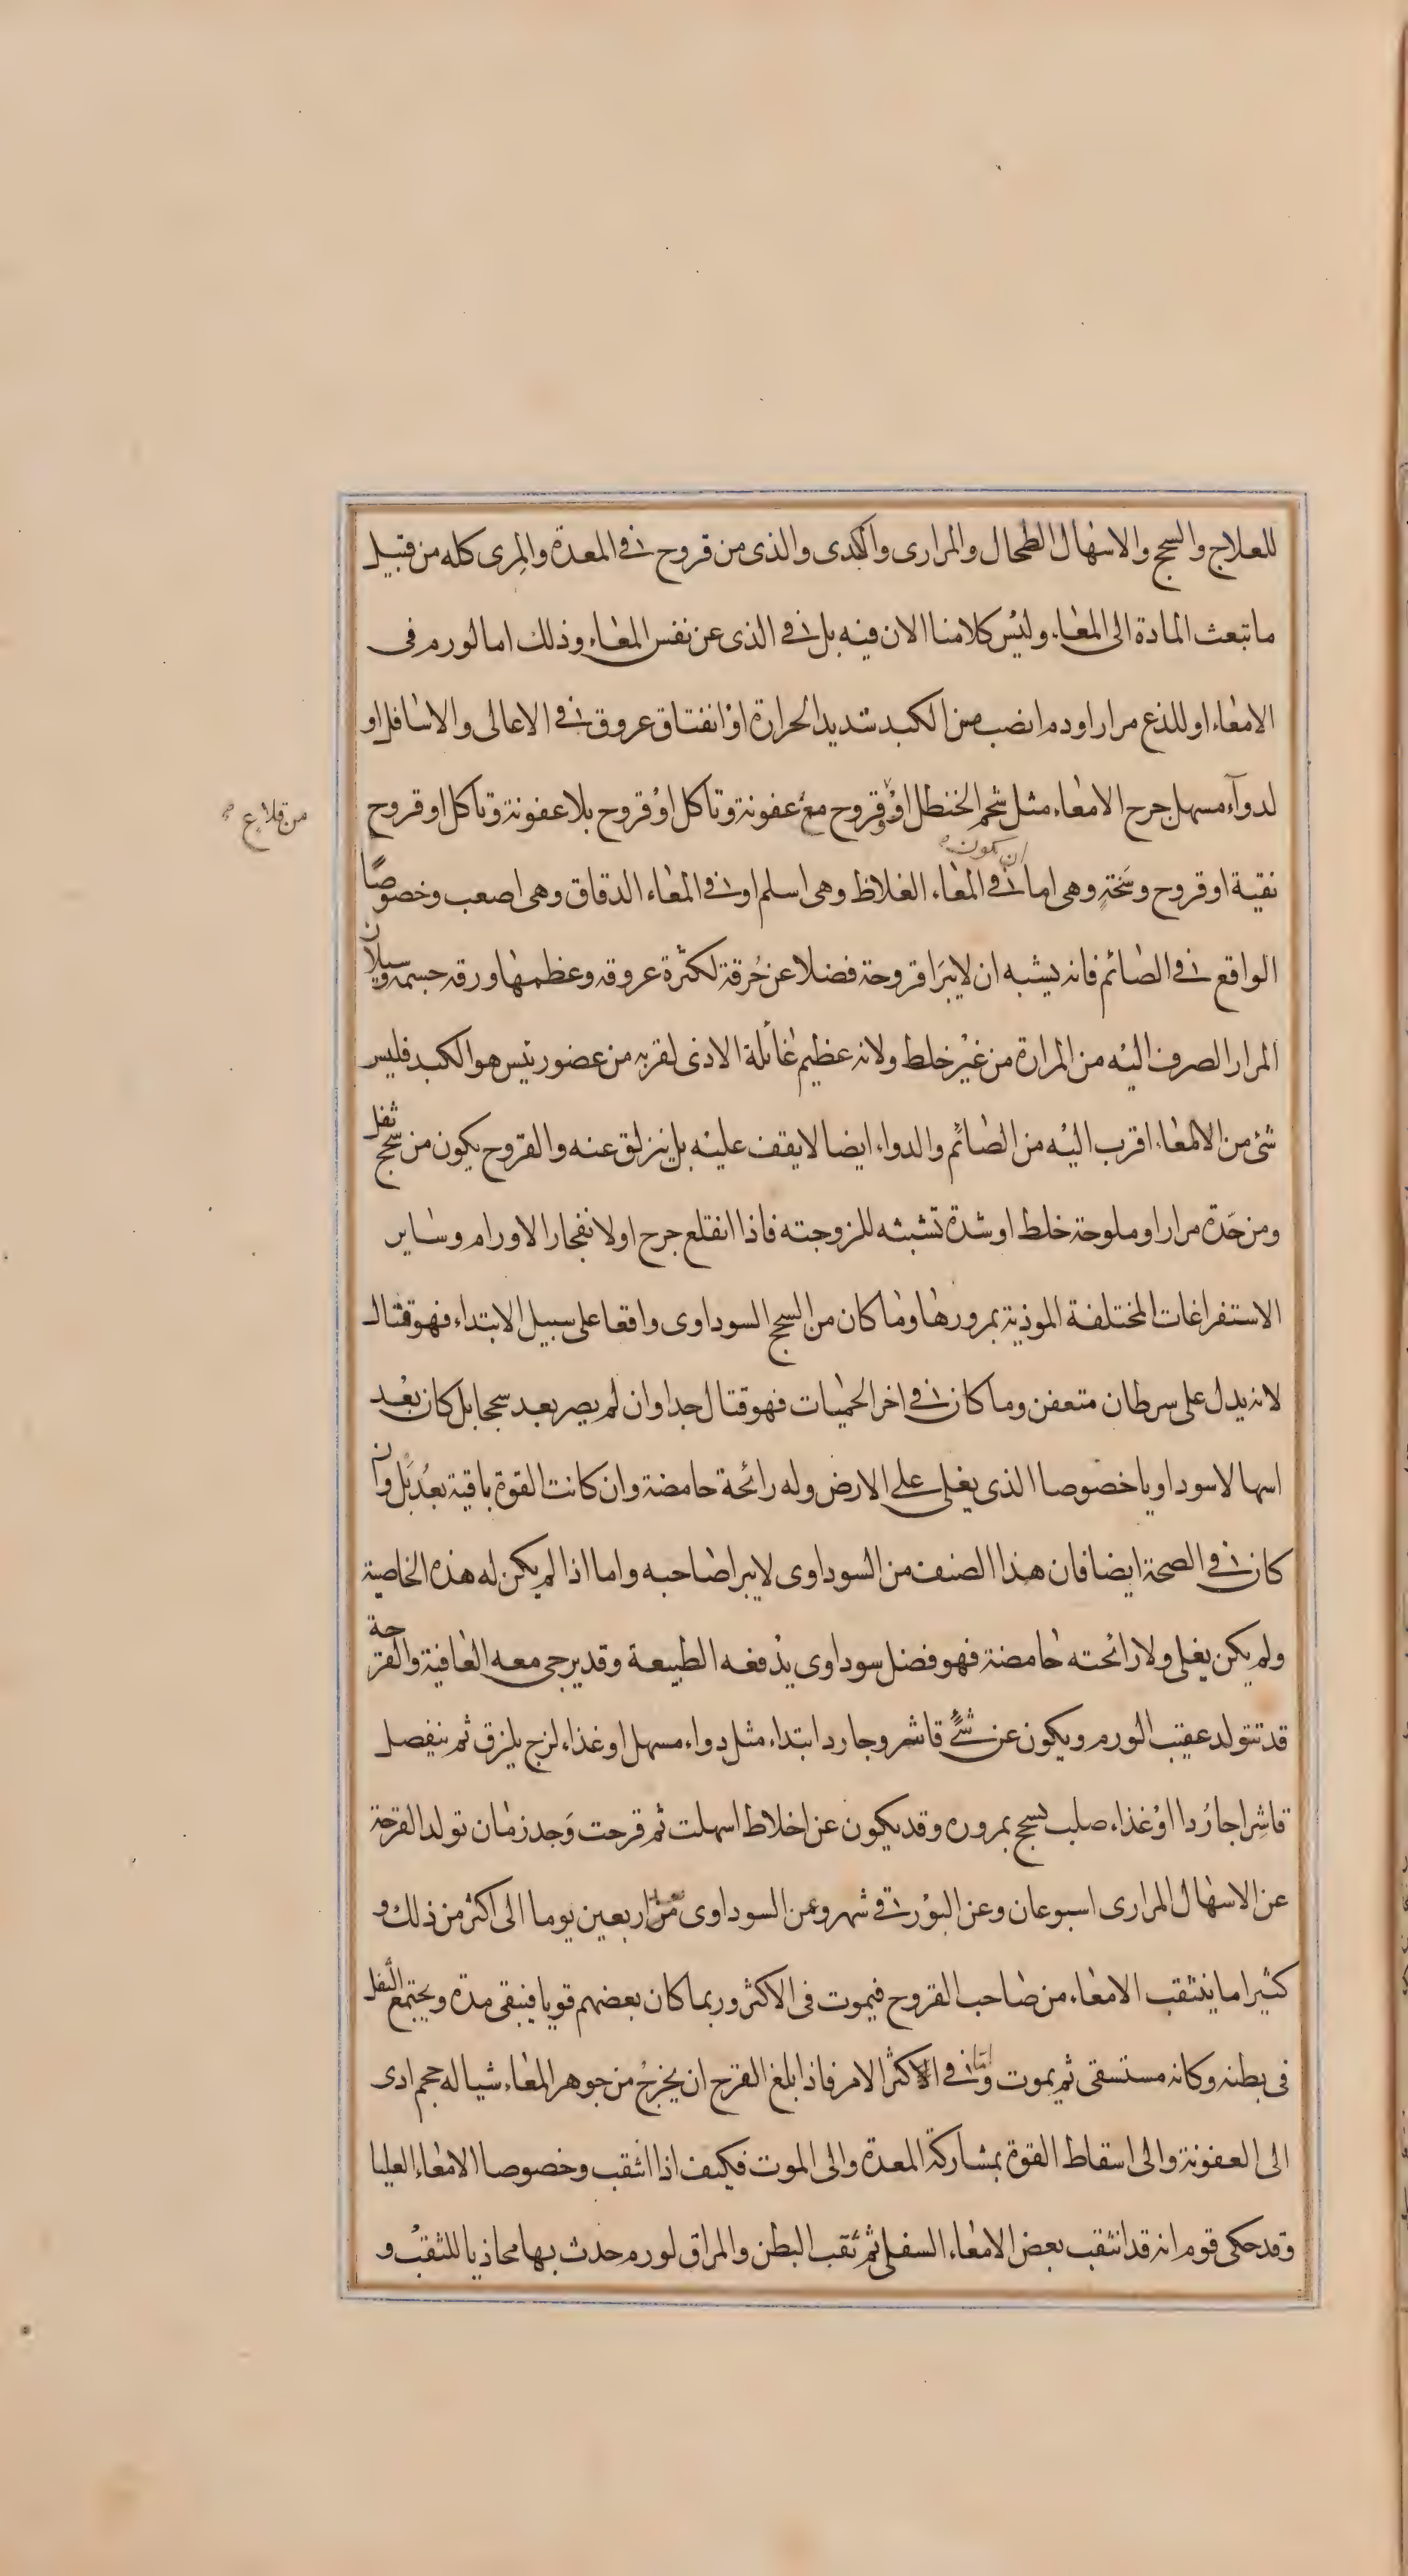 للعلاج والسحج والاسهال الطحال والمرارى والكبدى والذى من قروح فى المعدة والمرى كله من قبيل
ما تبعث المادة الى المعاء وليس كلامنا الان فيه بل فى الذى عن نفس المعاء وذلك اما لورم فى
الامعاء او للذع مرار او دم انصب من الكبد شديد الحرارة او انفتاق عروق فى الاعالى والاسافل او
لدواء مسهل جرح الامعاء مثل شحم الحنظل او قروح مع عفونة وتاكل او قروح بلا عفونة وتاكل او قروح
من قلاع
ان يكون
نقية او قروح وسخة وهى اما فى المعاء الغلاظ وهى اسلم او فى المعاء الدقاق وهى اصعب وخصوصًا
الواقع فى الصائم فانه يشبه ان لا يبرا قروحة فضلا عن خرقة لكثرة عروقه وعظمها ورقه جسمه وسيلان
المرار الصرف اليه من المرارة من غير خلط ولانه عظيم غائلة الاذى لقربه من عضو رئيس هو الكبد فليس
شئ من الامعاء اقرب اليه من الصائم والدواء ايضا لا يقف عليه بل ينزلق عنه والقروح يكون من سحج ثفل
ومن حدة مرار او ملوحة خلط او شدة تشبثه للزوجته فاذا انقلع جرح او لانفجار الاورام وساير
الاستفراغات المختلفة الموذية بمرورها وما كان من السحج السوداوى واقعا على سبيل الابتداء فهو قتال
لانه يدل على سرطان متعفن وما كان فى اخر الحميات فهو قتال جدا وان لم يصر بعد سحجا بل كان بعد
اسهالا سوداويا خصوصا الذى يغلى على الارض وله رائحة حامضة وان كانت القوة باقية بعد بل وان
كان فى الصحة ايضا فان هذا الصنف من السوداوى لا يبرا صاحبه واما اذا لم يكن له هذه الخاصية
ولم يكن يغلى ولا رائحته حامضة فهو فضل سوداوى يدفعه الطبيعة وقد يرجى معه العافية والقرحة
قد تتولد عقيب الورم ويكون عن شئ قاشر وجارد ابتداء مثل دواء مسهل او غذاء لزج يلزق ثم ينفصل
قاشرا جاردا او غذاء صلب يسحج بمروره وقد يكون عن اخلاط اسهلت ثم قرحت وجد زمان تولد القرحة
عن الاسهال المرارى اسبوعان وعن البورقى شهر وعن السوداوى من اربعين يوما الى اكثر من ذلك و
كثيرا ما ينثقب الامعاء من صاحب القروح فيموت فى الاكثر وربما كان بعضهم قويا فيبقى مدة ويجتمع الثفل
فى بطنه وكانه مستسقى ثم يموت واما فى الاكثر الامر فاذا بلغ القرح ان يخرج من جوهر المعاء شيا له حجم ادى
الى العفونة والى اسقاط القوة بمشاركة المعدة والى الموت فكيف اذا انثقب وخصوصا الامعاء العليا
وقد حكى قوم انه قد انثقب بعض الامعاء السفلى ثم ثقب البطن والمراق لورم حدث بها محاذيا للثقب و